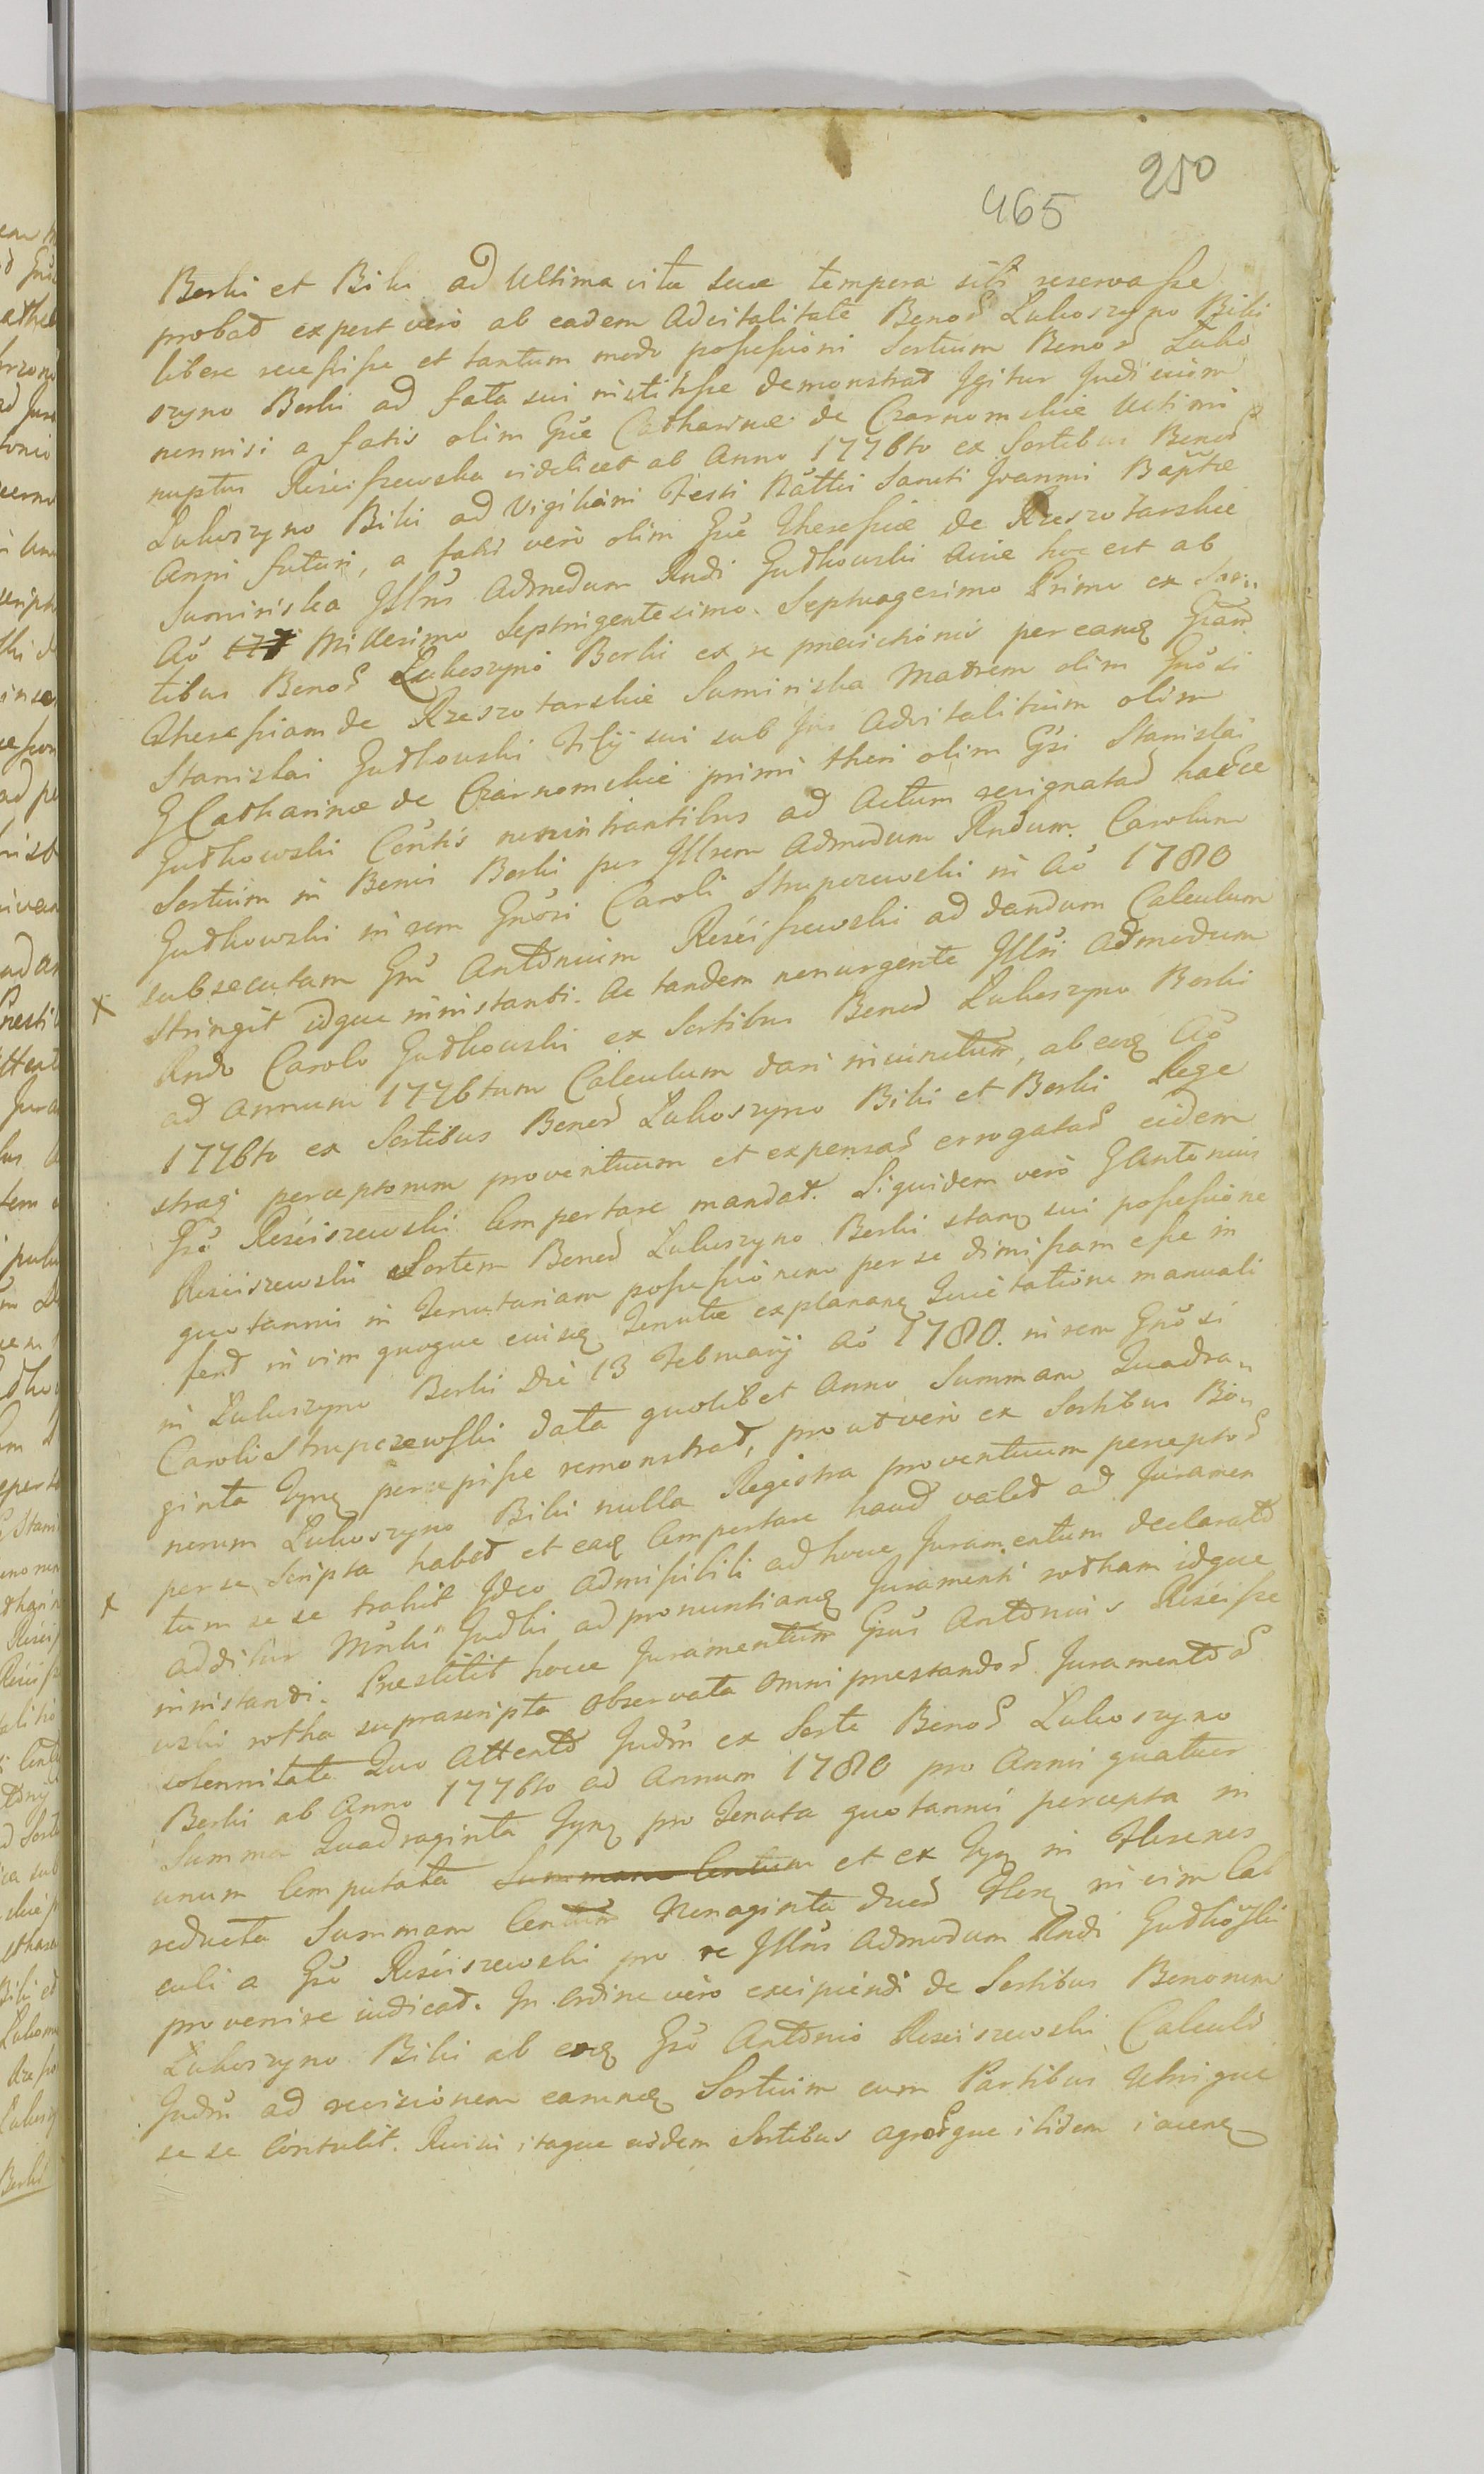 250
465
Borki et Biki ad Ultima vitæ suæ tempora sibi reservasse
probat ex post vero ab eadem advitalitate Bonor Lukoszyno Biki
libere recessisse et tantum modo possessioni Sortium Bonor Luko
szyno Borki ad fata sui institisse demonstrat Igitur Judicium
nonnisi a fatis olim Gsæ Catharinæ de Czarnomskie Ultimi
nuptus Kiciszewska videlicet ab Anno 1776to ex Sortibus Bonor
Lukoszyno Biki ad Vigiliam Festi Nattis Sancti Joannis Baptæ
Anni futuri, a fatis vero olim Gsæ Theressiæ de Rzeszotarskie
Suminska Illris Admodum Rndi Gutkowski Aviæ hoc est ab
Aō Millesimo Septingentesimo Septuagesimo Primo ex Sor
tibus Bonor Lukoszyno Borki ex re per eanq Gsam
Theressiam de Rzeszotarskie Suminska Matrem olim Gnosi
Stanislai Gutkowski Filij sui sub Jus Advitalitium olim
G Catharinæ de Czarnomskie primi thori olim Gsi Stanislai
Gutkowski Contis non intrantibus ad Actum resignatad hacce
Sortium in Bonis Borki per Illrem Admodum Rndum Carolum
Gutkowski in rem Gnosi Caroli Strupczewski in Aō 1780
subsecutam Gsm Antonium Kiciszewski ad dandum Calculum
× stringit idque in instanti. Ac tandem non urgente Illri Admodum
Rndo Carolo Gutkowski ex Sortibus Bonor Lukoszyno Borki
ad Annum 1776tum Calculum dari, ab eoq Aō
1776to ex Sortibus Bonor Lukoszyno Biki et Borki Rege
straq perceptorum proventuum et expensar errogatar eidem
Gsō Kiciszewski Comportare mandat. Siquidem vero G Antonius
Kiciszewski Sortem Bonor Lukoszyno Borki stanq sui possessione
quotannis in Tenutariam possessionem per se dimissam esse in
fert in vim quoque ejusq Tenutæ explananq Quietatione manuali
in Lukoszyno Borki Die 13 Februarij Aō 1780. in rem Gnosi
Caroli Strupczewski data quolibet Anno Summam Quadra„
ginta Tynq percepisse remonstrat, prout vero ex Sortibus Bo„
norum Lukoszyno Biki nulla Regestra proventuum perceptor
per se Scripta habet et eaq Comportare haud valet ad Juramen
× tum se se trahit Ideo admissibili adhocce Juramentum declarato
additur Mnrlis Judlis ad pronuntianq Juramenti rotham idque
in instanti. Præstitit hocce Juramentum Gsus Antonius Kicisze
wski rotha suprascripta observata omni præstandor Juramentor
solennitate Quo Attento Judm ex Sorte Bonor Lukoszyno
Borki ab Anno 1776to ad Annum 1780 pro Annis quatuor
Summa Quadraginta Tynq pro Tenuta quotannis percepta in
unum Computata Summam Centum et ex Tyn in Florenos
reducta Summam Centum Nonaginta duor Florq in vim Cal
culi a Gsō Kiciszewski pro re Illris Admodum Rndi Gutkowski
provenire iudicat. In Ordine vero excipiendi de Sortibus Bonorum
Lukoszyno Biki ab eoq Gsō Antonio Kiciszewski Calculi
Judm ad revisionem earunq Sortium cum Partibus Utrinque
se se Contulit. Revisis itaque eisdem Sortibus agrorque ibidem iacenq